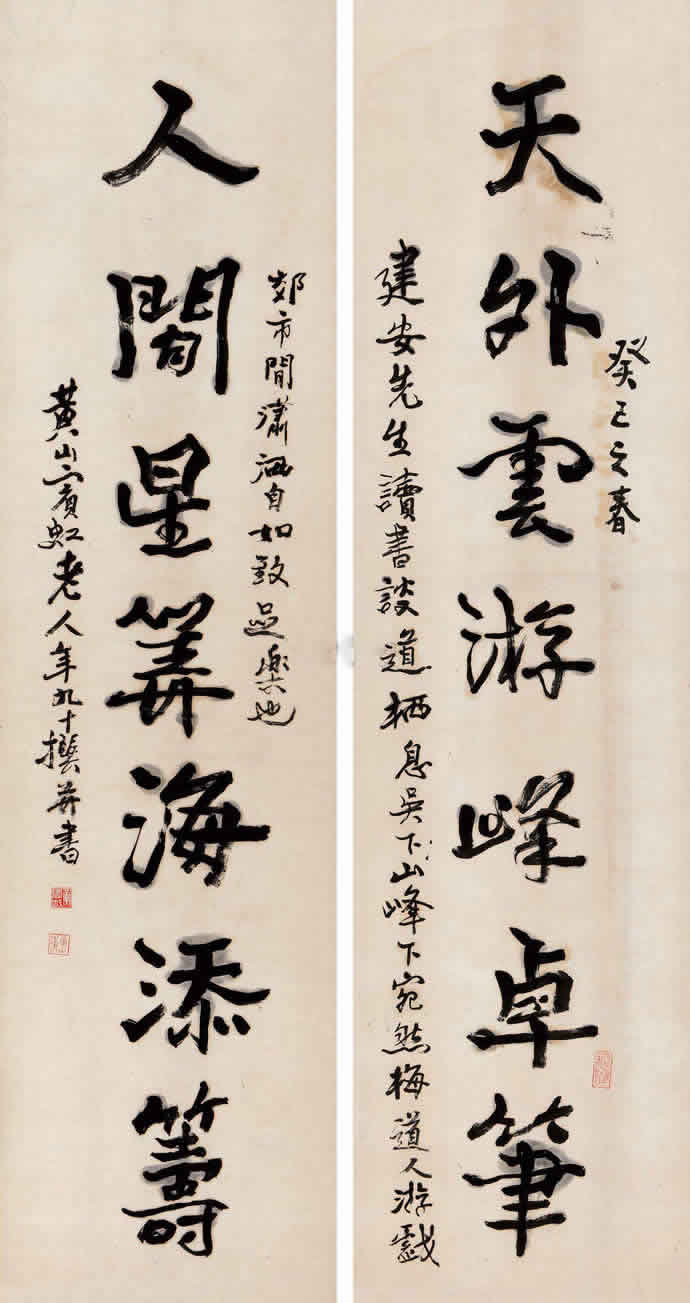 癸巳之春
天外雲游峰卓筆
建安先生讀書談道栖息吳下山峰下宛然梅道人游戲
郊市間瀟洒自如致足樂也
人間星筭海添籌
黃山賓虹老人年九十撰并書